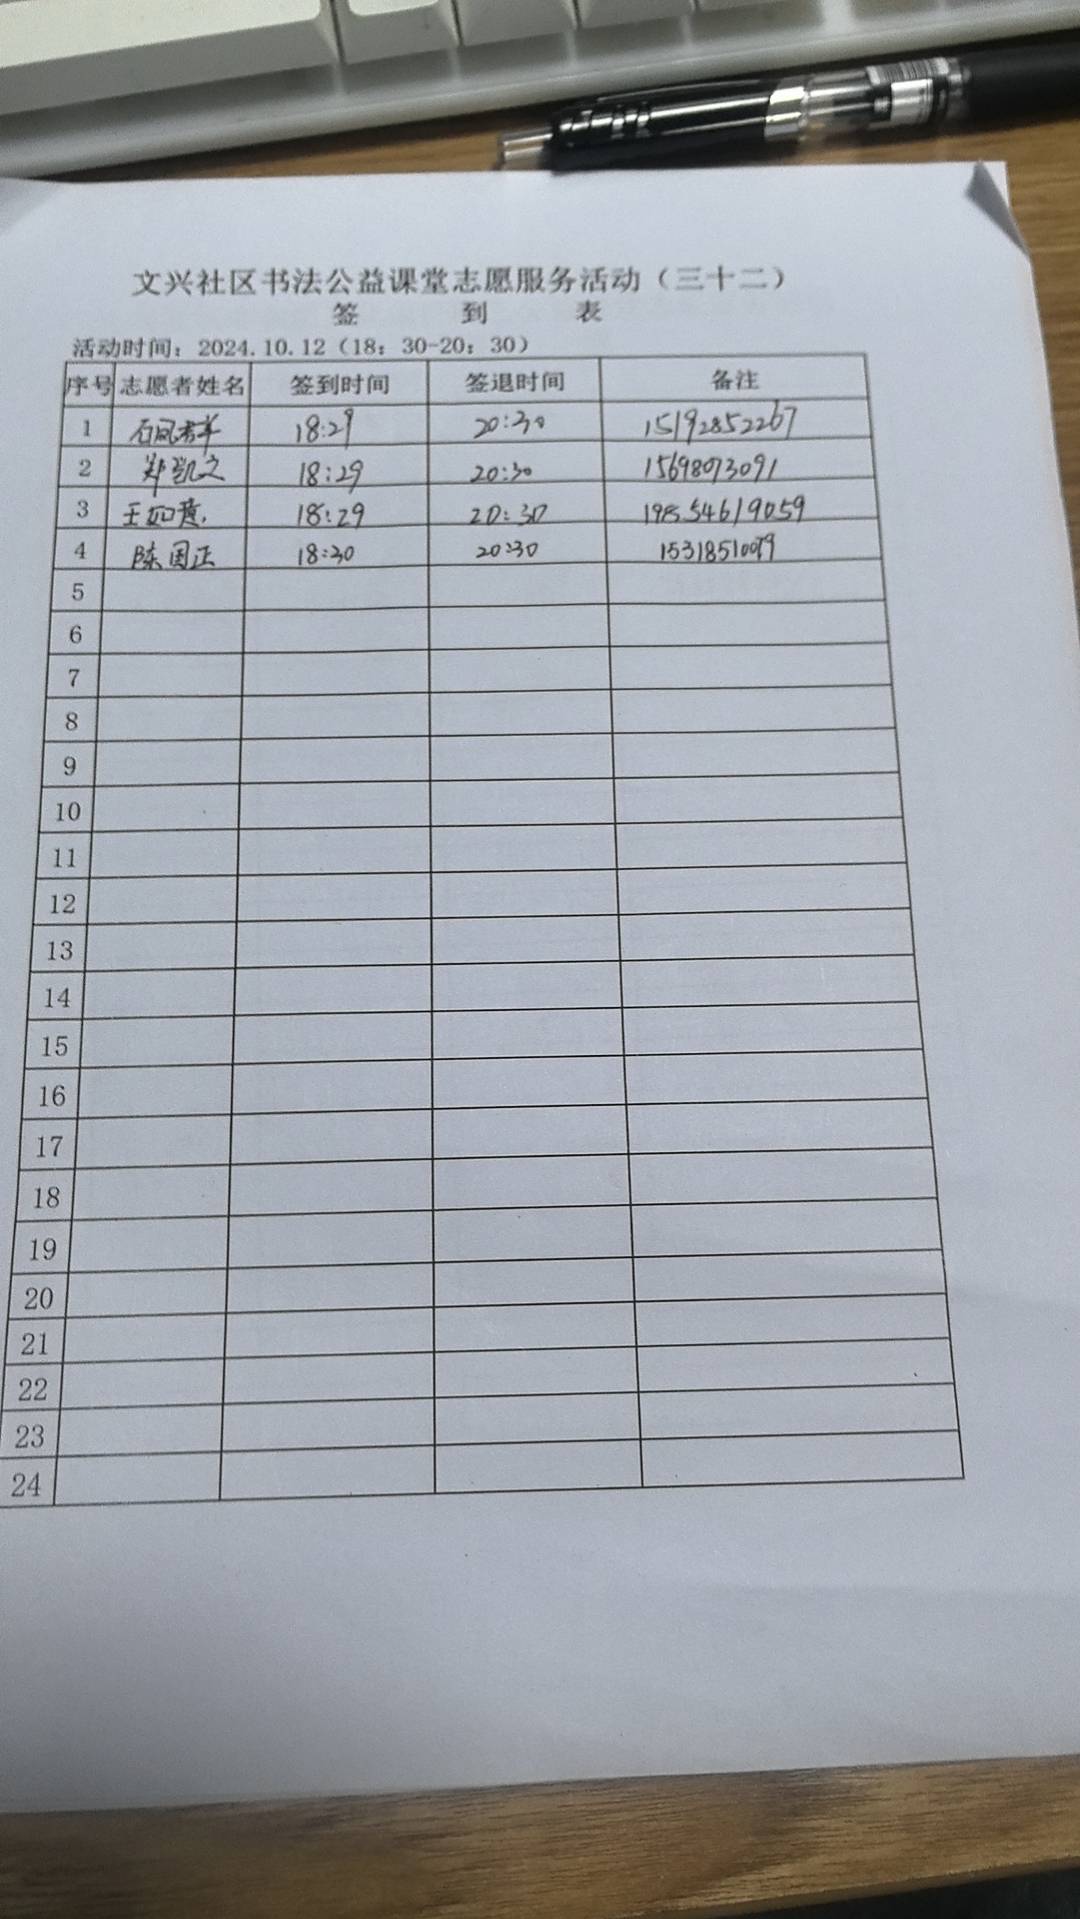 文兴社区书法公益课堂志愿服务活动（三十二）
签 到 表
活动时间：2024.10.12（18：30-20：30）
序号 志愿者姓名 签到时间 签退时间 备注
1 18:29 20:30 15192852267
2 郑凯文 18:29 20:30 15698073091
3 王如意 18:29 20:30 19854619059
4 陈国正 18:30 20:30
5
6
7
8
9
10
11
12
13
14
15
16
17
18
19
20
21
22
23
24